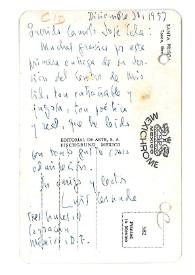 CID
Diciembre 30, 1957
Querido Camilo José Cela:
Muchas gracias por esta
primera entrega de su ver
sión del Cantar de Mio
Cid, tan
y
tan poética
y real que he leído
con tanto gusto como
admiración.
Su amigo y lector
Luis Cernuda
Tres Cruces 11
Coyoacán
México, D.F.
EDITORIAL DE ARTE, S. A.
FISCHGRUND, MEXICO
MEXICHROME